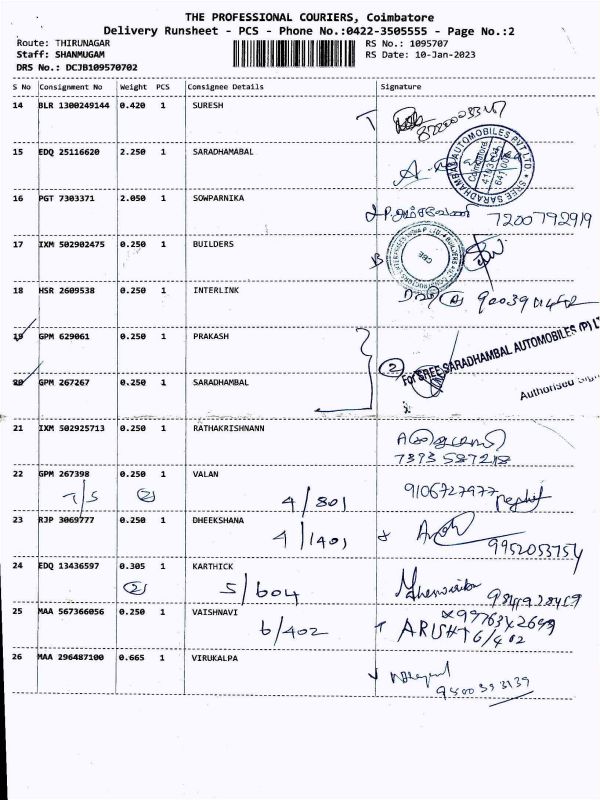 THE PROFESSIONAL COURIERS, Coimbatore
Delivery Runsheet - PCS - Phone No.:0422-3505555 - Page No.:2
Route: THIRUNAGAR RS No.: 1095707
Staff: SHANMUGAM RS Date: 10-Jan-2023
DRS No.: DCJB109570702
S No Consignment No Weight PCS Consignee Details Signature
14 BLR 1300249144 0.420 1 SURESH
15 EDQ 25116620 2.250 1 SARADHAMABAL
SREE SARADHAMBAL AUTOMOBILES PVT LTD
Coimbatore
16 PGT 7303371 2.050 1 SOWPARNIKA
7200792919
17 IXM 502902475 0.250 1 BUILDERS
18 HSR 2609538 0.250 1 INTERLINK
19 GPM 629061 0.250 1 PRAKASH
2 For SREE SARADHAMBAL AUTOMOBILES (P) LT
20 GPM 267267 0.250 1 SARADHAMBAL
Authorised
21 IXM 502925713 0.250 1 RATHAKRISHNANN
7393 587218
22 GPM 267398 0.250 1 VALAN
7/5 2 4/801 9106727977
23 RJP 3069777 0.250 1 DHEEKSHANA
4/1401 9952053754
24 EDQ 13436597 0.305 1 KARTHICK
2 5/604
25 MAA 567366056 0.250 1 VAISHNAVI
6/402 ARISHT 6/402
26 MAA 296487100 0.665 1 VIRUKALPA
9500393139